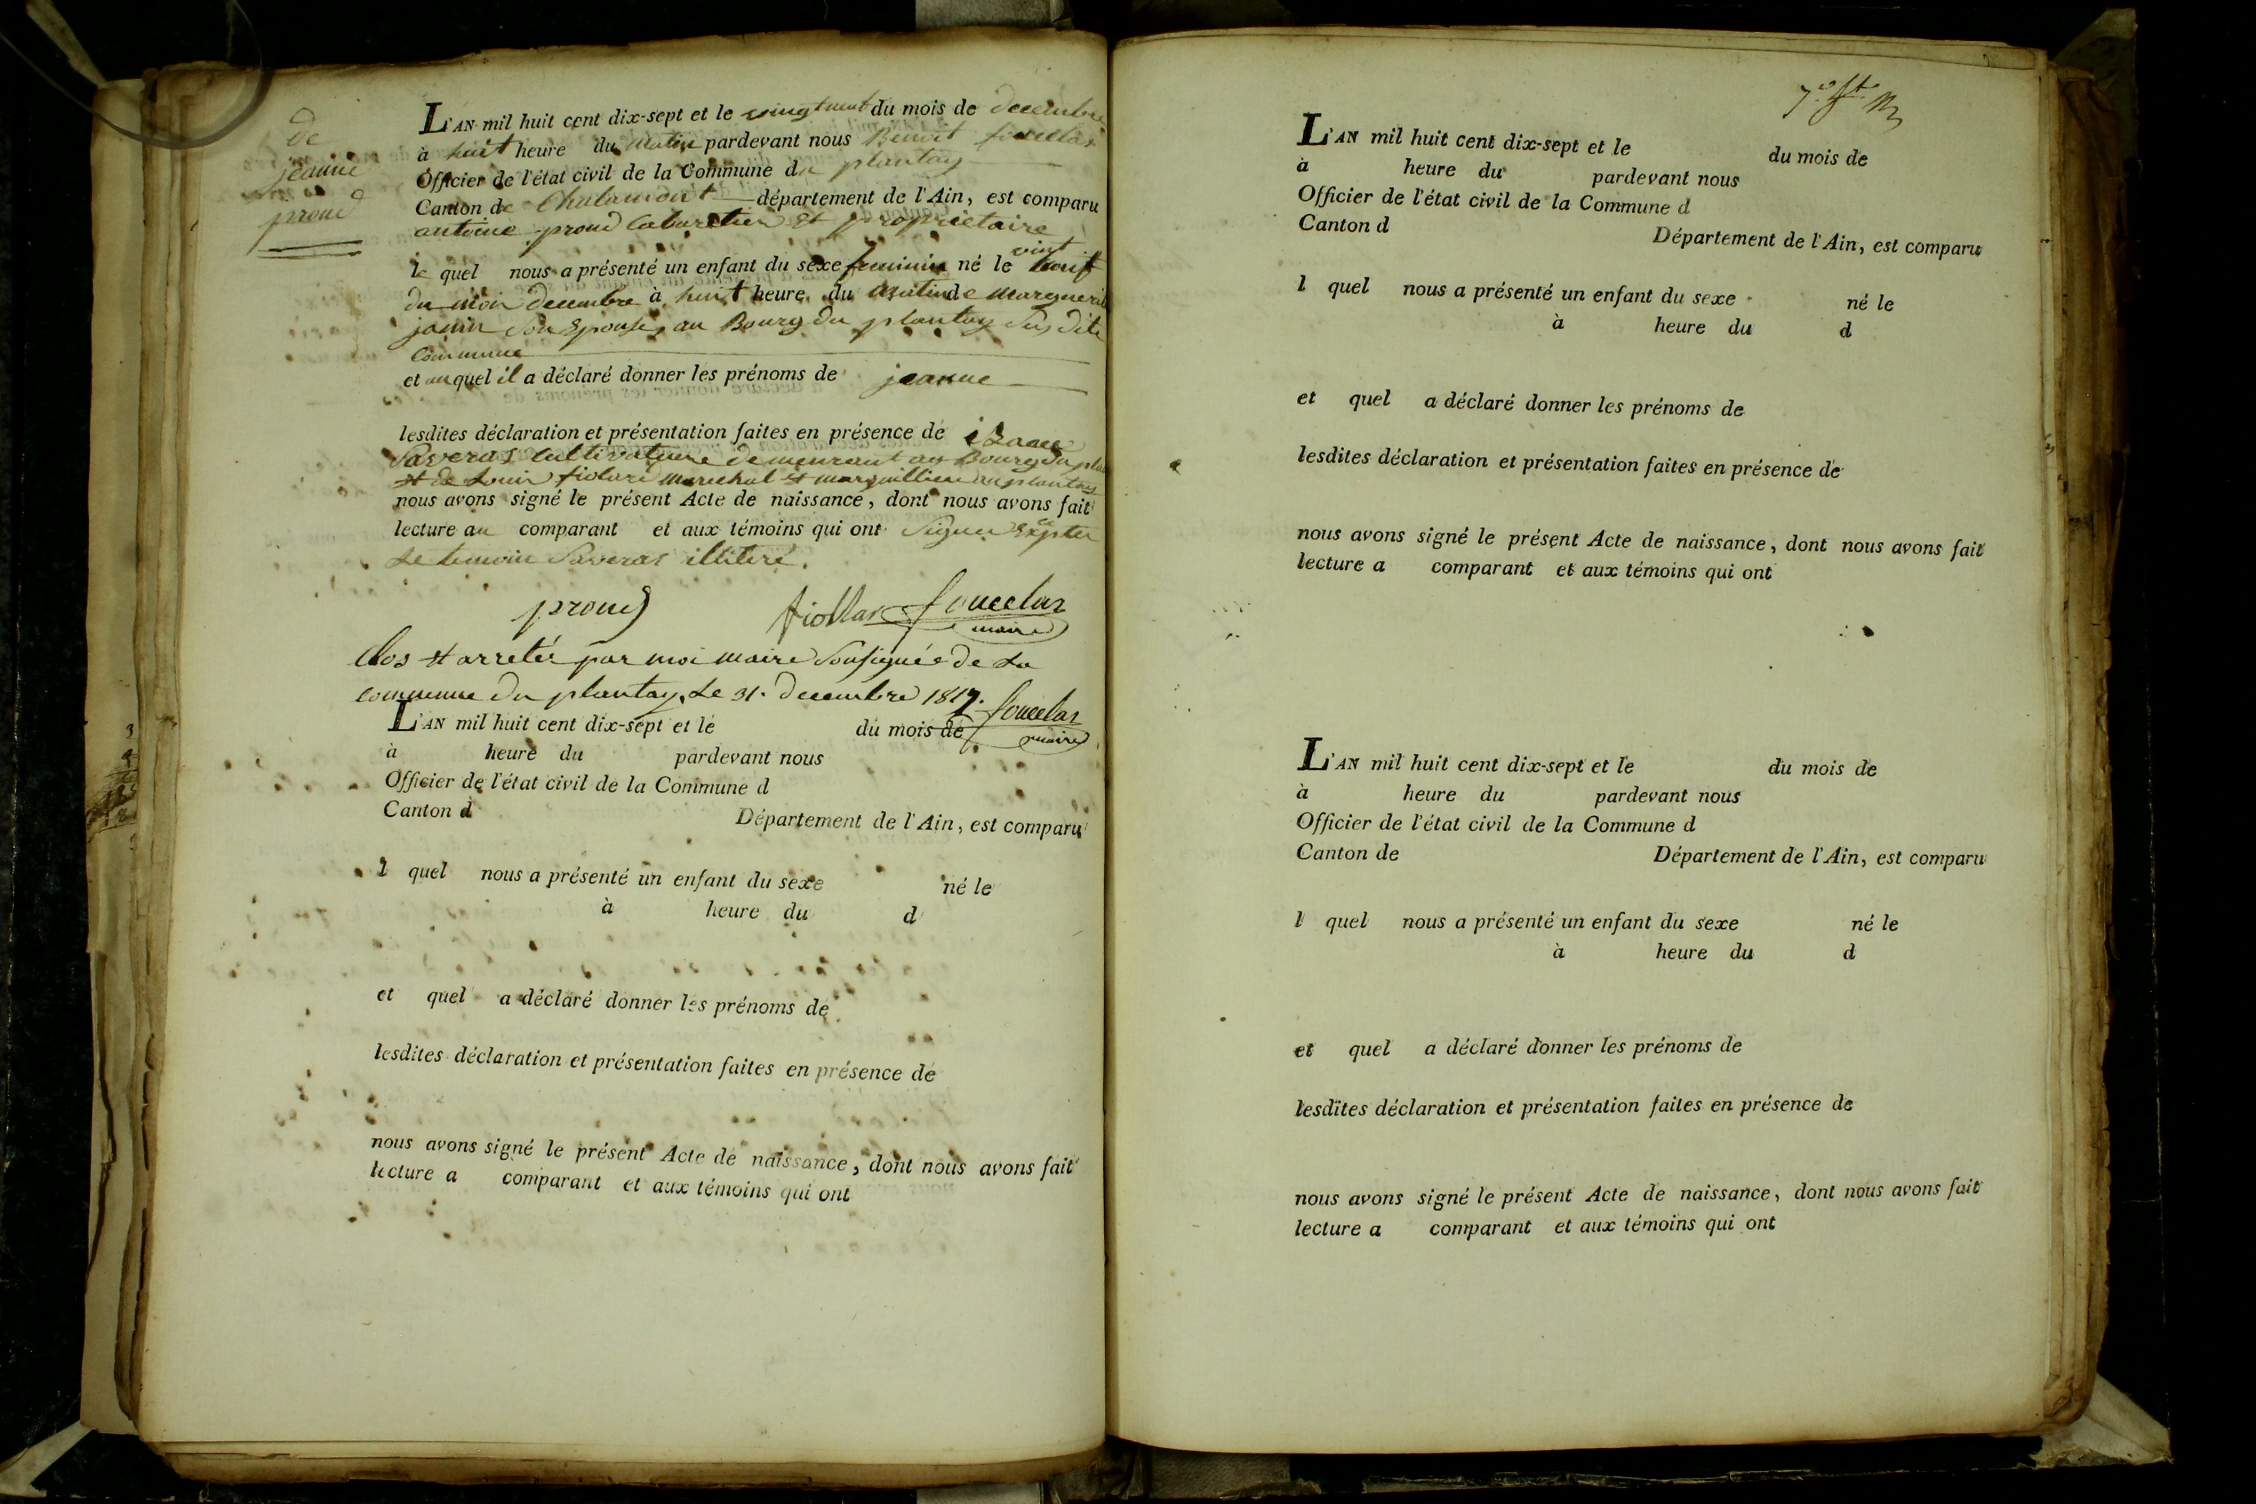 de
jeanne
proud
L'AN mil huit cent dix-sept et le vingt neuf du mois de decembre
à huit heure du matin pardevant nous Benoit fouellas
Officier de l'état civil de la Commune du plantay
Canton de Chalamont département de l'Ain, est comparu
antoine proud Cabaretier et proprietaire
le quel nous a présenté un enfant du sexe feminin né le vint neuf
du mois decembre à huit heure du matin de Marguerit
janin son Epouse, au Bourg du plantay Sus dite
Commune
et auquel il a déclaré donner les prénoms de jeanne
lesdites déclaration et présentation faites en présence de
Saveras Cultivateur demeurant au Bourg du
et de Louis fiolard Marechal et marguillier au plantay
nous avons signé le présent Acte de naissance, dont nous avons fait
lecture au comparant et aux témoins qui ont Signer Excepter
Le temoin Saveras illiteré.
proud fiollar fouellas
maire
Clos et arretés par moi maire Sousignée de La
commune du plantay, Le 31. decembre 1817. fouellas
maire
L'AN mil huit cent dix-sept et le du mois de
à heure du pardevant nous
Officier de l'état civil de la Commune d
Canton d Département de l'Ain, est comparu
l quel nous a présenté un enfant du sexe né le
à heure du d
et quel a déclaré donner les prénoms de
lesdites déclaration et présentation faites en présence de
nous avons signé le présent Acte de naissance, dont nous avons fait
lecture a comparant et aux témoins qui ont
L'AN mil huit cent dix-sept et le du mois de
à heure du pardevant nous
Officier de l'état civil de la Commune d
Canton d Département de l'Ain, est comparu
l quel nous a présenté un enfant du sexe né le
à heure du d
et quel a déclaré donner les prénoms de
lesdites déclaration et présentation faites en présence de
nous avons signé le présent Acte de naissance, dont nous avons fait
lecture a comparant et aux témoins qui ont
L'AN mil huit cent dix-sept et le du mois de
à heure du pardevant nous
Officier de l'état civil de la Commune d
Canton de Département de l'Ain, est comparu
l quel nous a présenté un enfant du sexe né le
à heure du d
et quel a déclaré donner les prénoms de
lesdites déclaration et présentation faites en présence de
nous avons signé le présent Acte de naissance, dont nous avons fait
lecture a comparant et aux témoins qui ont